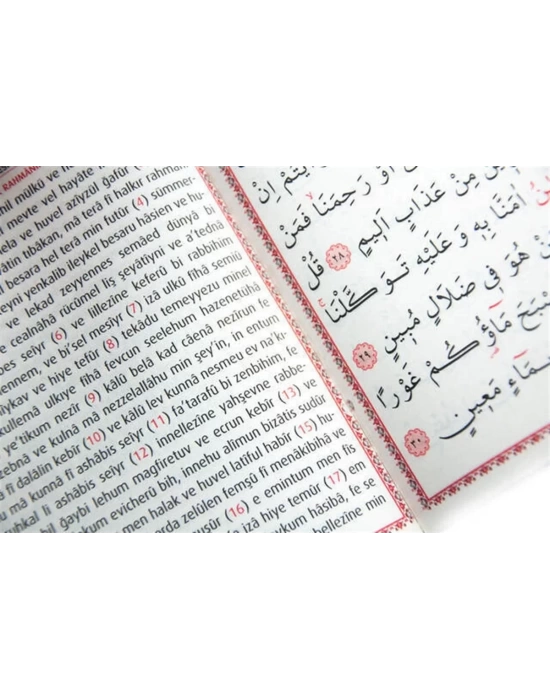 RAHMANİ
mülkü ve
meyte vel hayâte
ve huvel azîyzül gafûr
tıbâkan, mâ terâ fî halkır rahmâ
besara hel terâ min futûr (4) sümmer-
yenkalib ileykel besaru hâsien ve hu-
ve lekad zeyyennes semâed dünyâ bi
cealnâhâ rücûmel liş şeyâtiyni ve a'tednâ
seiyr (6) ve lillezîne keferû bi rabbihim
ve bi'sel mesîyr (7) izâ ulkû fîhâ semiû
ve hiye tefûr (8) tekâdu temeyyezu minel
kullemâ ulkıye fîhâ fevcun seelehum hazenetühâ
e'tikum nezîr (9) kâlû belâ kad câenâ nezîrun fe
ve kulnâ mâ nezzelallâhu min şey'in, in entum
fî dalâlin kebîr (10) ve kâlû lev kunnâ nesmeu ev na'kı-
mâ kunnâ fî ashâbis seiyr (11) fa'tarafû bi zenbihim, fe
fî ashâbis seiyr (12) innellezîne yahşevne rabbe-
bil ğaybi lehum mağfiretuv ve ecrun kebîr (13) ve
evicherû bih, innehu alîmun bizâtis sudûr
men halak ve huvel latîful habîr (15) hu-
zelûlen femşû fî menâkibihâ ve
(16) e emintum men fis
izâ hiye temûr (17) em
hâsibâ, fe se
bellezîne min
اَوْ رَحِمَنَا فَمَنْ
مِنْ عَذَابٍ اَلٖيمٍ ٢٨ قُلْ
اٰمَنَّا بِهٖ وَعَلَيْهِ تَوَكَّلْنَا
هُوَ فٖي ضَلَالٍ مُبٖينٍ ٢٩
مَٓاؤُ۬كُمْ غَوْرًا
مَعٖينٍ ٣٠